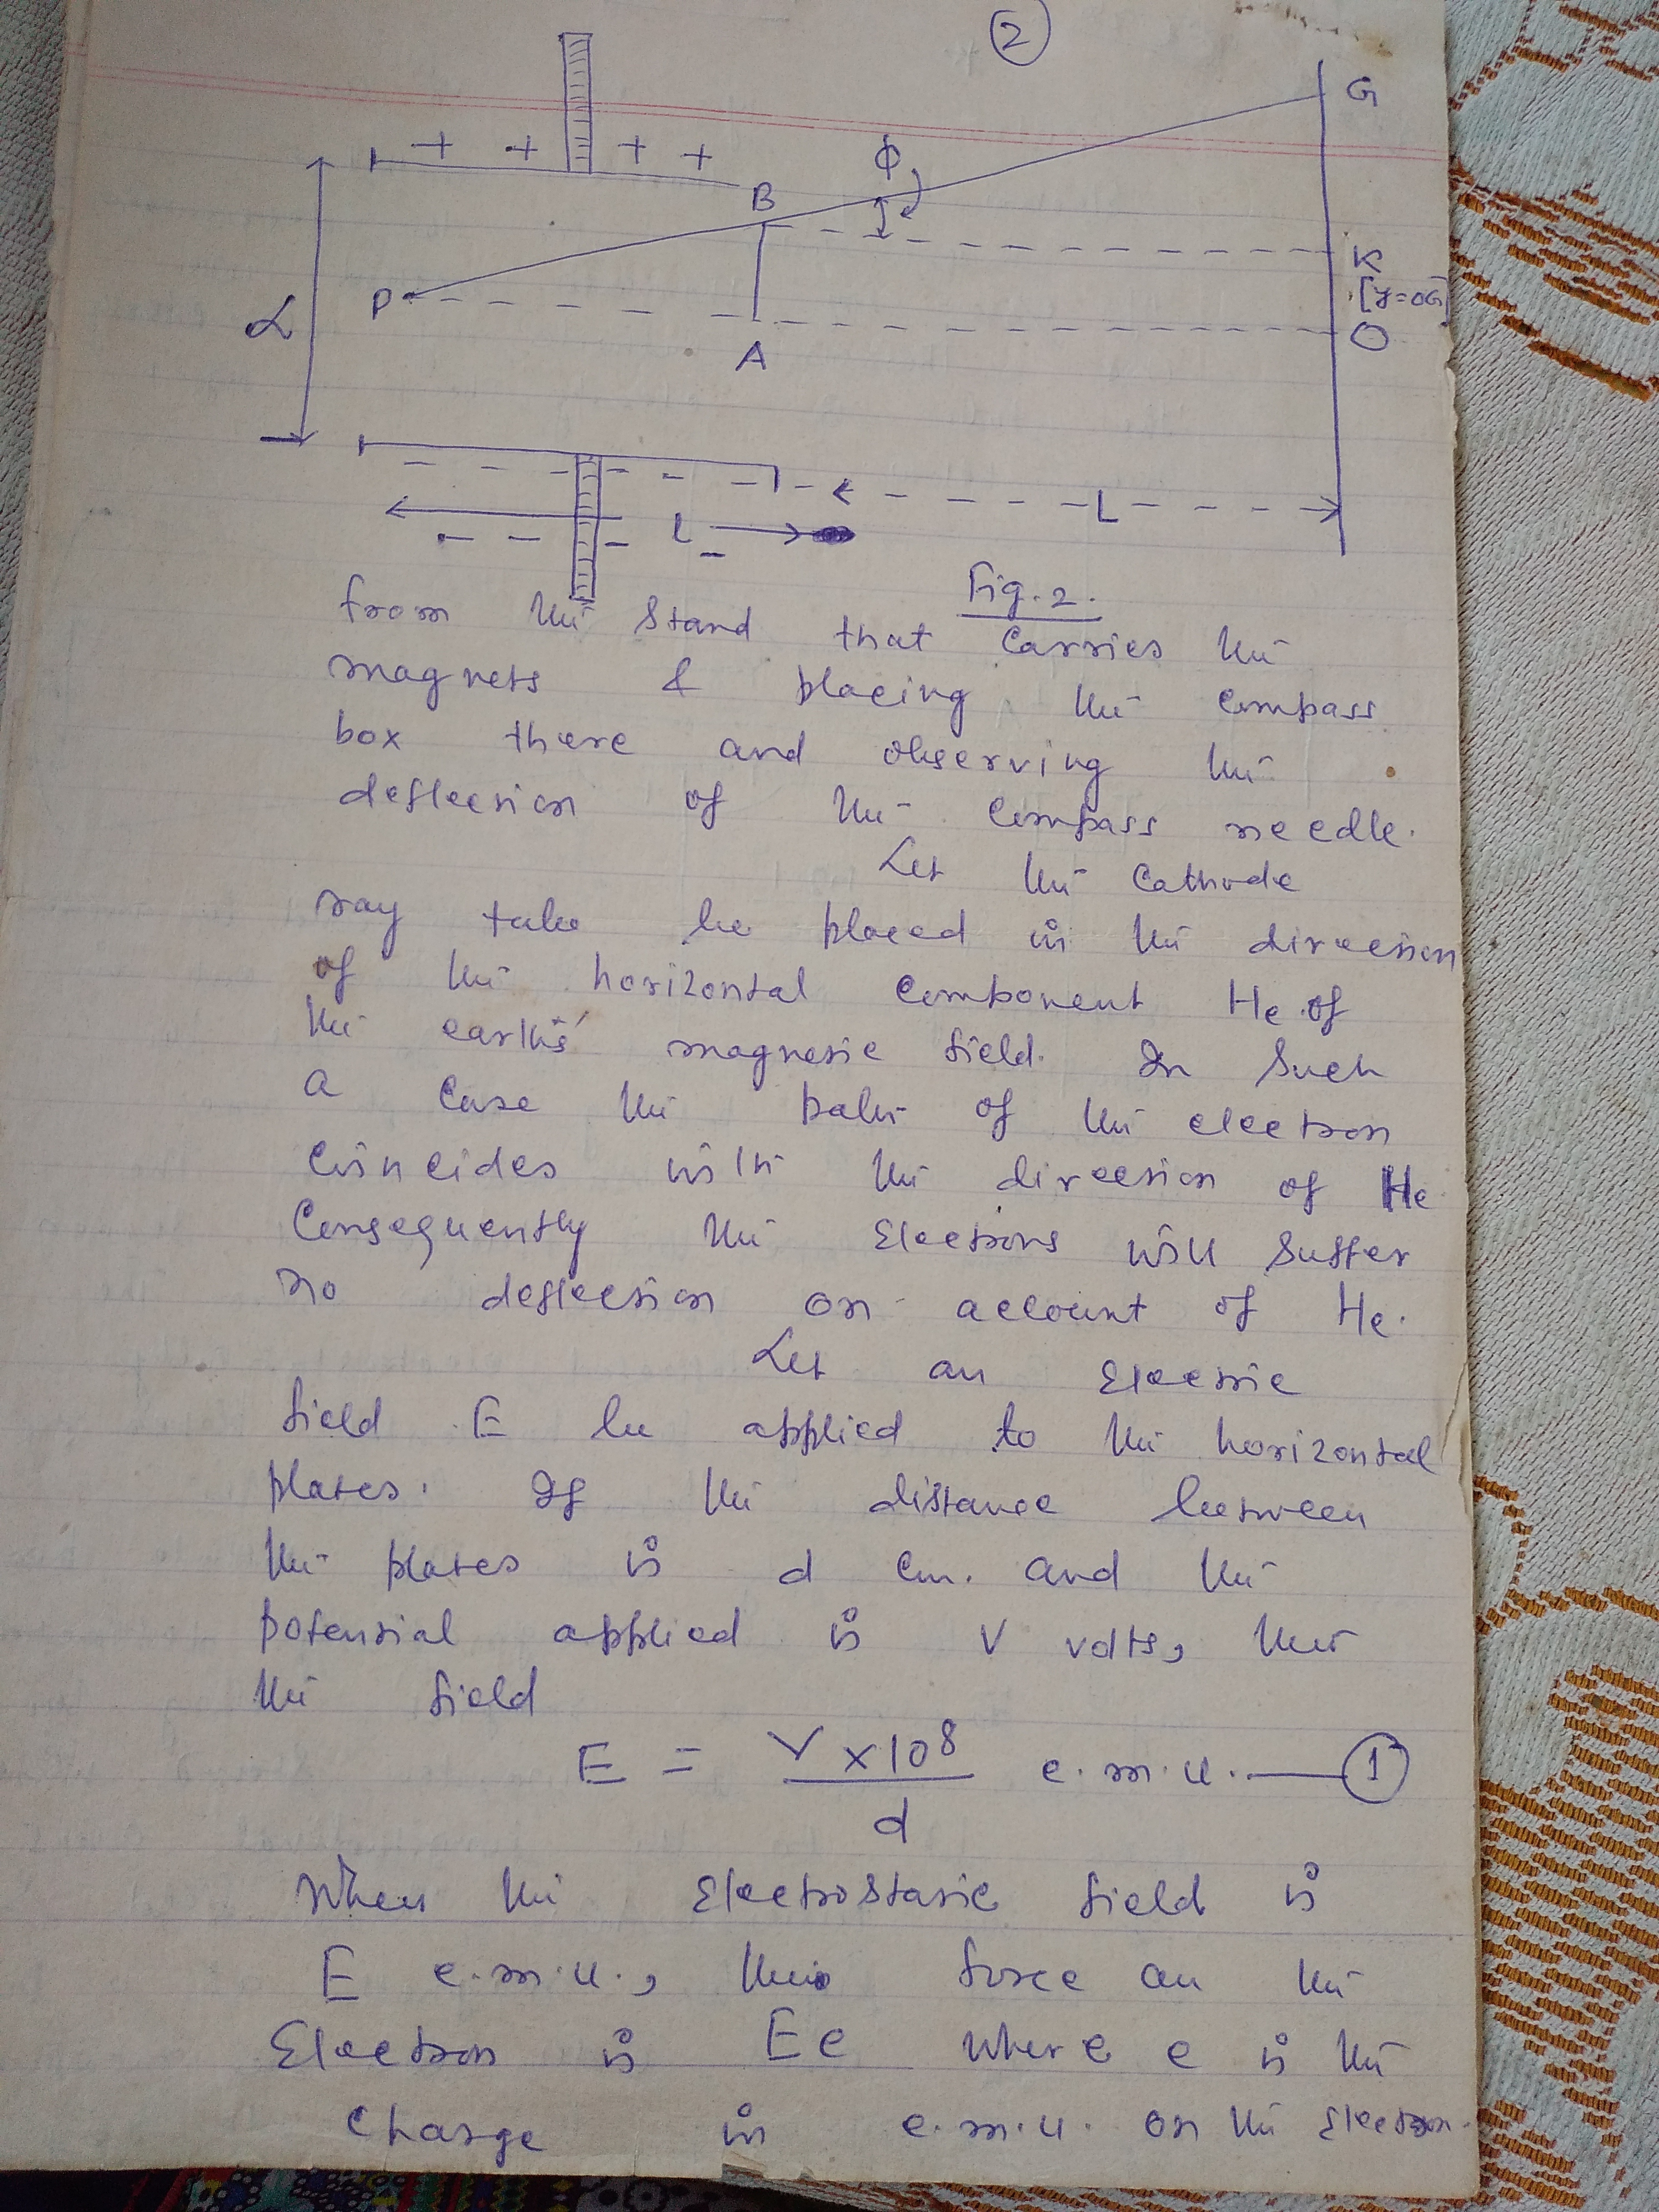 2
G
+ + + +
ϕ
B
K
P
[y=OG]
α
O
A
L
l
Fig. 2.
from the stand that carries the
magnets & placing the compass
box there and observing the
deflection of the compass needle.
Let the Cathode
ray tube be placed in the direction
of the horizontal component He of
the earth's magnetic field. In Such
a Case the path of the electron
Coincides with the direction of He
Consequently the Electrons will Suffer
no deflection on account of He.
Let an Electric
field E be applied to the horizontal
plates. If the distance between
the plates is d cm. and the
potential applied is V volts, then
the field
E = V×10⁸/d e.m.u. — 1
When the Electrostatic field is
E e.m.u., the force on the
Electron is Ee where e is the
Charge in e.m.u. on the Electron.